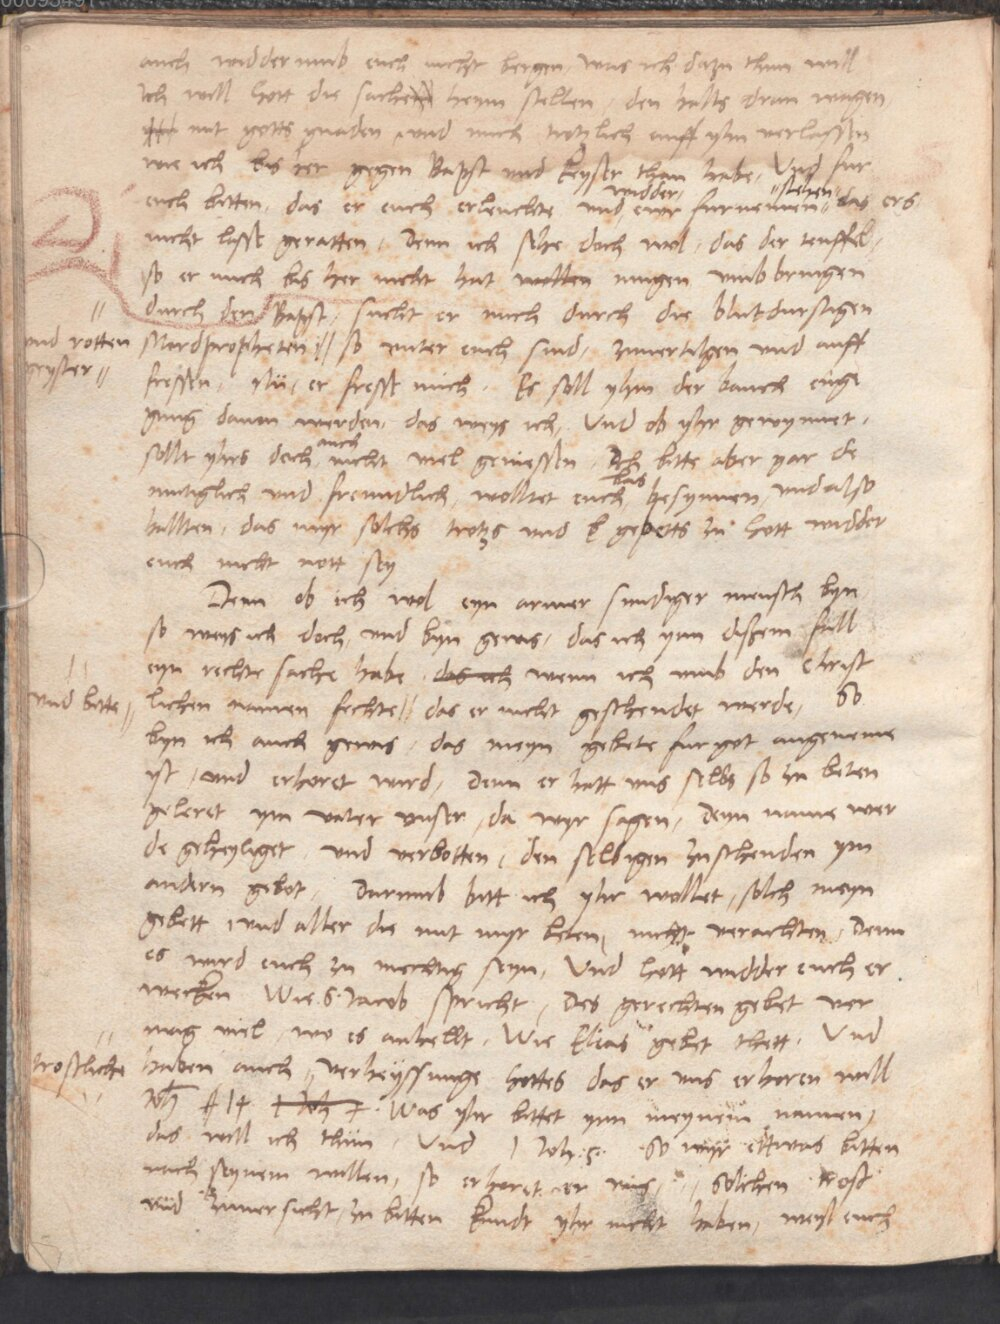 auch widderumb euch nicht bergen, was ich dazu thun will
Ich will Gott die sache heym stellen, den hals dran wagen
mit gotts gnaden und mich trotzlich auff yhn verlassen
wie ich bis her gegen Bapst und keyser than habe, Und fur
euch bitten, das er euch erleuchte und widder ewr furnemen stehen, das ers
nicht lasse geratten, Denn ich sehe doch wol, das der teuffel,
so er mich bis her nicht hat mugen umbbringen
durch den Bapst, sucht er mich durch die blutdurstigen
Mordpropheten so unter euch sind, zuuertilgen und auff
und rotten
geyster
fressen, Nu, er fresse mich, Es soll yhm der bauch enge
gnug dauon werden, das weys ich, Und ob yhr gewynnet,
sollt yhrs doch auch nicht viel geniessen, Ich bitte aber gar de
mutiglich und freundlich, wolltet euch bas besynnen, und also
hallten, das myr solchs trotzs und gepetts zu Gott widder
euch nicht nott sey
Denn ob ich wol eyn armer sundiger mensch byn
so weys ich doch und byn gewis, das ich ynn dissem fall
eyn rechte sache habe wenn ich umb den Christ
lichen namen fechte das er nicht geschendet werde, So
und bitte
byn ich auch gewis, das meyn gebete fur got angeneme
ist, und erhoret wird, Denn er hatt uns selbs so zu beten
geleret ym vater unser, da wyr sagen, Deyn name wer
de geheyliget, und verbotten, den selbigen zuschenden ym
andern gebot, Darumb bitt ich yhr wollet, solch meyn
gebett, und aller die mit myr beten, nicht verachten, Denn
es wird euch zu mechtig seyn, Und Gott widder euch er
wecken Wie S. Jacob spricht, Des gerechten gebet ver
mag viel, wo es anhellt, Wie Elias gebet thett, Und
haben auch, verheyssunge Gottes das er uns erhoren will
trostliche
Joh 14 Was yhr bittet ynn meynem namen,
das will ich thun, Und 1 Joh. 5. So wyr ettwas bitten
nach seynem willen, so erhoret er uns, Solchen trost
und zuuersicht, zu bitten kundt yhr nicht haben, weyl euch